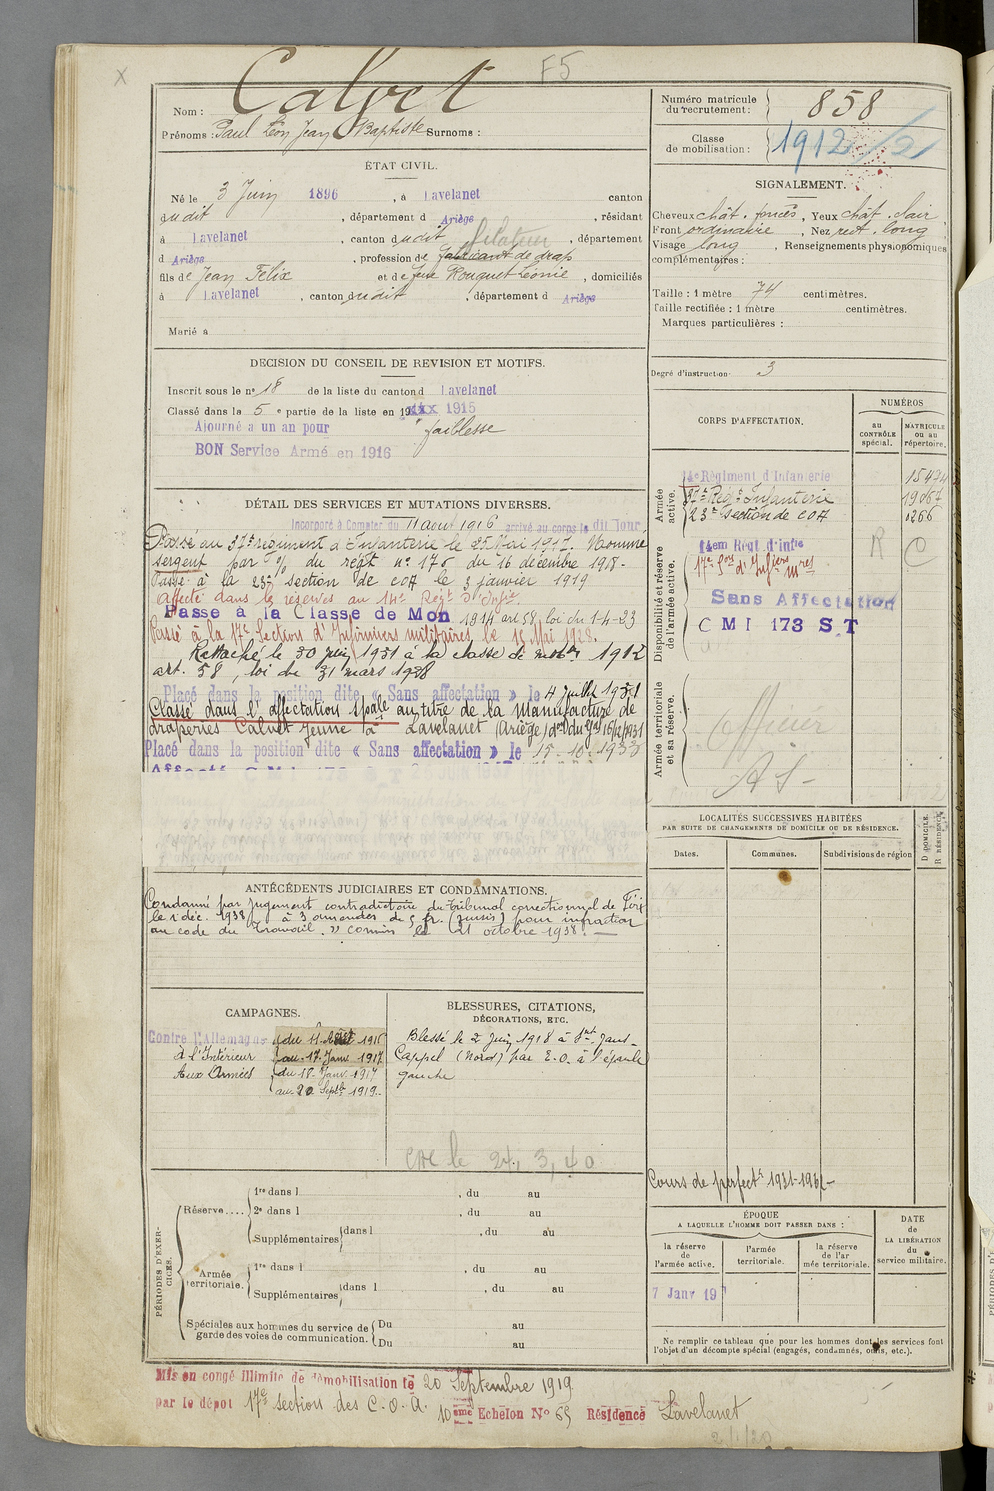 F5
X
Nom : Calvet
Prénoms : Paul Léon Jean Baptiste Surnoms :
ÉTAT CIVIL.
Né le 3 Juin 1896, à Lavelanet canton
dudit, département d Ariège, résidant
à Lavelanet, canton dudit, département
filateur
d Ariège, profession de fabricant de drap
fils de Jean Felix et de feue Rouquet Léonie, domiciliés
à Lavelanet, canton dudit, département d Ariège
Marié à
DÉCISION DU CONSEIL DE REVISION ET MOTIFS.
Inscrit sous le n° 18 de la liste du canton d Lavelanet
Classé dans la 5e partie de la liste en 19 1915
Ajourné a un an pour faiblesse
BON Service Armé en 1916
DÉTAIL DES SERVICES ET MUTATIONS DIVERSES.
Incorporé à Compter du 11 aout 1916 arrivé au corps le dit jour
Passé au 37e régiment d'Infanterie le 25 Mai 1917. Nommé
sergent par % du régt n° 175 du 16 décembre 1918-
Passé à la 23e section de COA le 3 janvier 1919
Affecté dans la réserves au 14e Régt d'Infie
Passe à la Classe de Mon 1914 art 58 loi du 1-4-23
Passé à la 17e Section d'Infirmiers militaires le 15 Mai 1928.
Rattaché le 30 juin 1931 à la classe de mobon 1912
art. 58, loi du 31 mars 1928
Placé dans la position dite « Sans affectation » le 4 juillet 1931
Classé dans l'affectation spale au titre de la Manufacture de
draperies Calvet Jeune à Lavelanet (Ariège)
Placé dans la position dite « Sans affectation » le 15.10.1933
Affecté C M I 173 S T
ANTÉCÉDENTS JUDICIAIRES ET CONDAMNATIONS.
Condamné par jugement contradictoire du tribunal correctionnel de Foix
le 1 déc. 1938 à 3 amendes de 5 fr. (sursis) pour infraction
au code du travail. " commis le 21 octobre 1938.
CAMPAGNES.
Contre l'Allemagne
à l'Intérieur
Aux Armées
du 11 Août 1916
au 17 Janv 1917
du 18 Janv 1917
au 20 Septbre 1919.
BLESSURES, CITATIONS,
DÉCORATIONS, ETC.
Blessé le 2 Juin 1918 à St Jans-
Cappel (Nord) par E.O. à l'épaule
gauche
le 24, 3, 40
PÉRIODES D'EXERCICES.
Réserve....
1re dans l , du au
2e dans l , du au
Supplémentaires dans l , du au
Armée territoriale.
1re dans l , du au
Supplémentaires dans l , du au
Spéciales aux hommes du service de garde des voies de communication.
Du au
Du au
Mis en congé illimité de démobilisation le 20 Septembre 1919
par le dépôt 17e section des C.O.A. 10eme Echelon No 65 Résidence Lavelanet
Numéro matricule du recrutement : 858
Classe de mobilisation : 1912/2
SIGNALEMENT.
Cheveux chât. foncés, Yeux chât. clair
Front ordinaire, Nez rect. long
Visage long, Renseignements physionomiques
complémentaires :
Taille : 1 mètre 74 centimètres.
Taille rectifiée : 1 mètre centimètres.
Marques particulières :
Degré d'instruction 3
CORPS D'AFFECTATION.
NUMÉROS
au CONTRÔLE spécial.
MATRICULE ou au répertoire.
Armée active.
14e Régiment d'Infanterie
37e Régt Infanterie 19067
23e section de COA 0266
Disponibilité et réserve de l'armée active.
14em Régt d'Infie
17e Son d'Infiers mres
R C
Sans Affectation
C M I 173 S T
Armée territoriale et sa réserve.
Officier
A S -
LOCALITÉS SUCCESSIVES HABITÉES
PAR SUITE DE CHANGEMENTS DE DOMICILE OU DE RÉSIDENCE.
Dates.
Communes.
Subdivisions de région
D DOMICILE.
R RÉSIDENCE.
Cours de perfectt 1931-1932-
ÉPOQUE
A LAQUELLE L'HOMME DOIT PASSER DANS :
la réserve de l'armée active.
l'armée territoriale.
la réserve de l'armée territoriale.
DATE de LA LIBÉRATION du service militaire.
7 Janv 19
Ne remplir ce tableau que pour les hommes dont les services font
l'objet d'un décompte spécial (engagés, condamnés, omis, etc.).